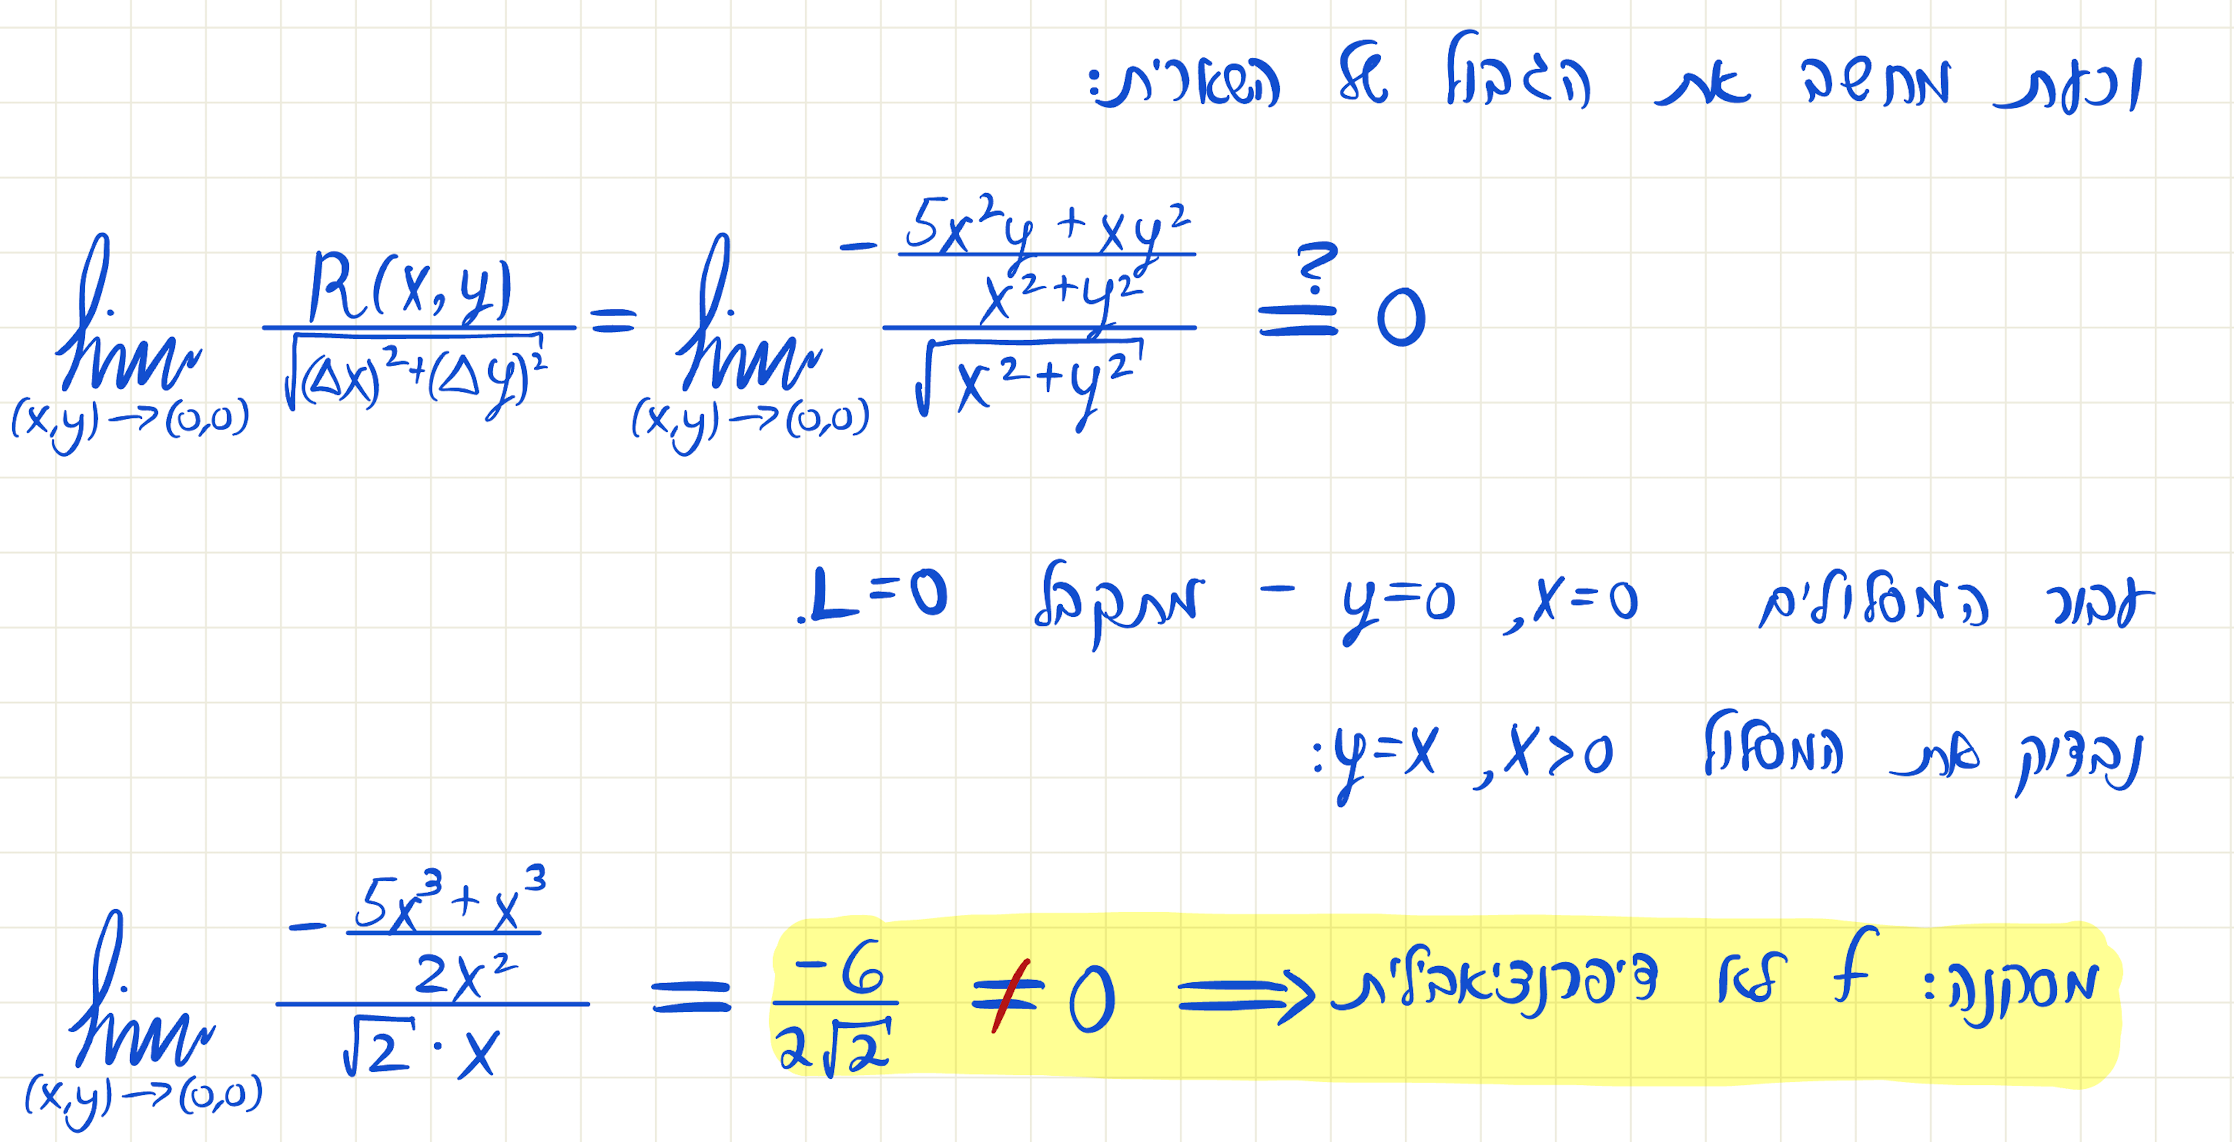 וכעת נחשב את הגבול של השארית:
lim_{(x,y)→(0,0)} R(x,y) / √((Δx)²+(Δy)²) = lim_{(x,y)→(0,0)} (−(5x²y + xy²)/(x²+y²)) / √(x²+y²) =^? 0
עבור המסלולים x=0, y=0 – נתקבל L=0.
נבדוק את המסלול y=x, x>0:
lim_{(x,y)→(0,0)} (−(5x³+x³)/(2x²)) / (√2·x) = −6/(2√2) ≠ 0 ⟹ מסקנה: f לא דיפרנציאבילית